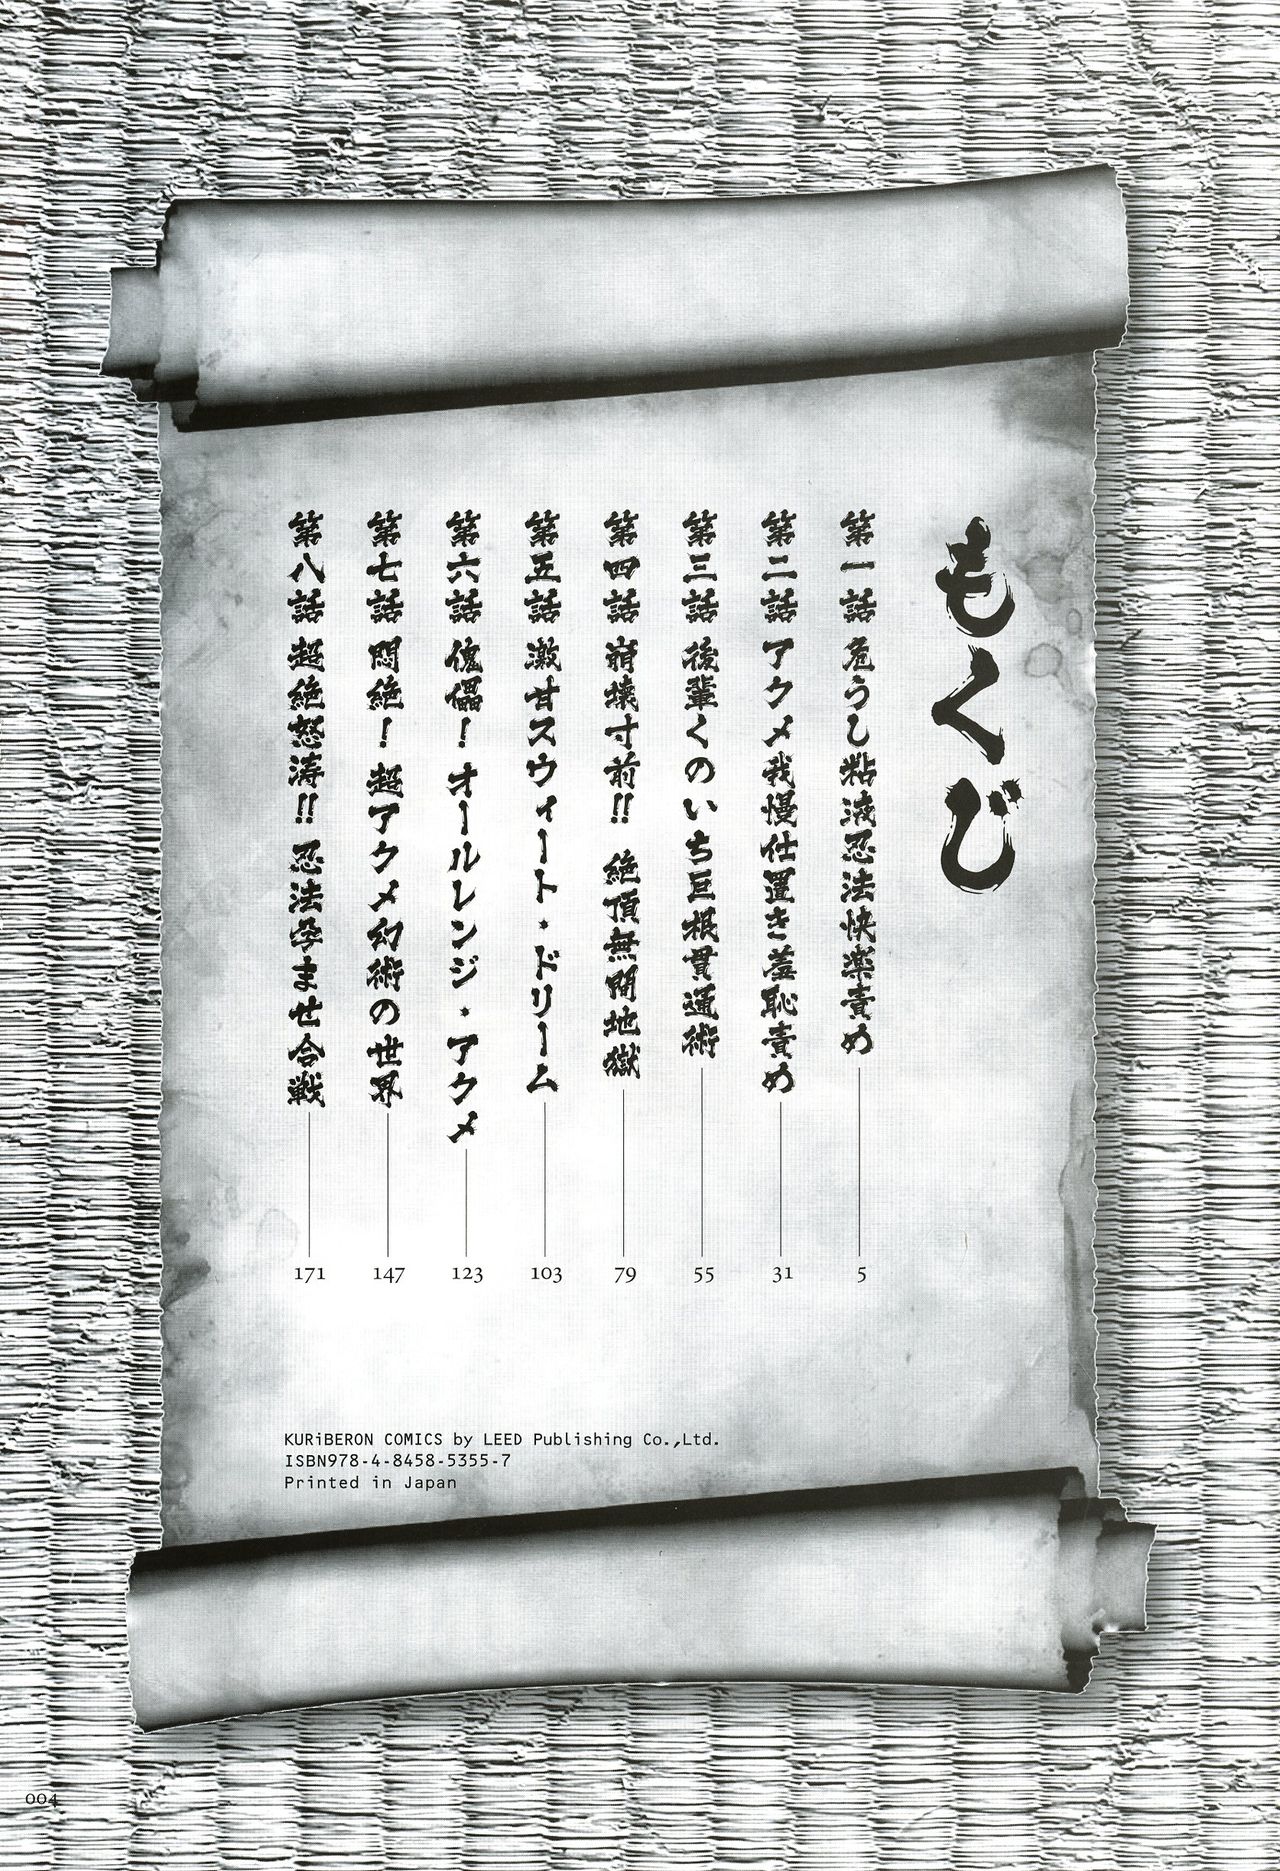 もくじ
第一話 危うし粘液忍法快楽責め 5
第二話 アクメ我慢仕置き羞恥責め 31
第三話 後輩くのいち巨根貫通術 55
第四話 崩壊寸前!! 絶頂無間地獄 79
第五話 激甘スウィート・ドリーム 103
第六話 傀儡！オールレンジ・アクメ 123
第七話 悶絶！超アクメ幻術の世界 147
第八話 超絶怒涛!! 忍法孕ませ合戦 171
KURiBERON COMICS by LEED Publishing Co.,Ltd.
ISBN978-4-8458-5355-7
Printed in Japan
004